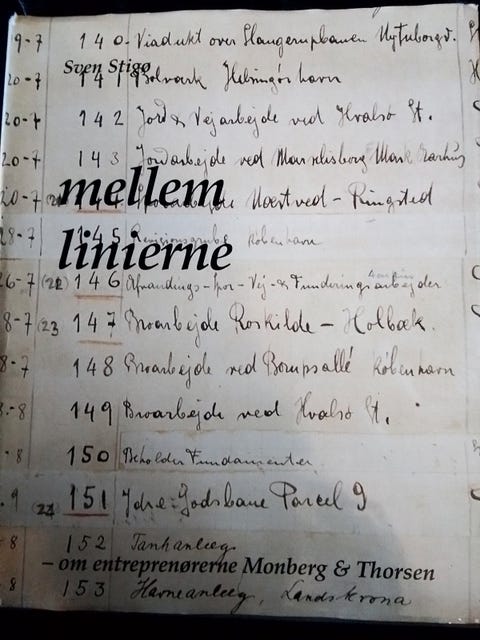 9-7 140. Viadukt over Slangerupbanen Nytuborgv.
Sven Stigø
20-7 141 Bolværk Helsingør havn
20-7 142 Jord & Vejarbejde ved Hvalsø St.
20-7 143 Jordarbejde ved Marselisborg Mark Aarhus
mellem
Næstved - Ringsted
linierne
28-7 145 København
26-7 (22) 146 Afvandings-Spor-Vej-& Funderingsarbejder
8-7 (23 147 Broarbejde Roskilde - Holbæk.
8-7 148 Broarbejde ved Borupsallé København
8.-8 149 Broarbejde ved Hvalsø St.
8 150 Beholder Fundamenter
9 24 151 Ydre-Godsbane Parcel 9
8 152 Tankanlæg
– om entreprenørerne Monberg & Thorsen
8 153 Havneanlæg, Landskrona